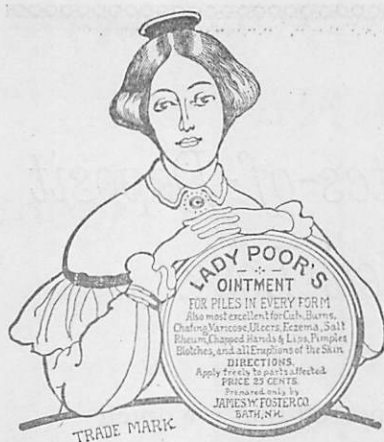 LADY POOR'S
OINTMENT
FOR PILES IN EVERY FORM
Also most excellent for Cuts, Burns,
Chafing, Varicose, Ulcers, Eczema, Salt
Rheum, Chapped Hands & Lips, Pimples
Blotches, and all Eruptions of the Skin
DIRECTIONS.
Apply freely to parts affected
PRICE 25 CENTS.
Prepared only by
JAMES W. FOSTER CO.
BATH, N.H.
TRADE MARK